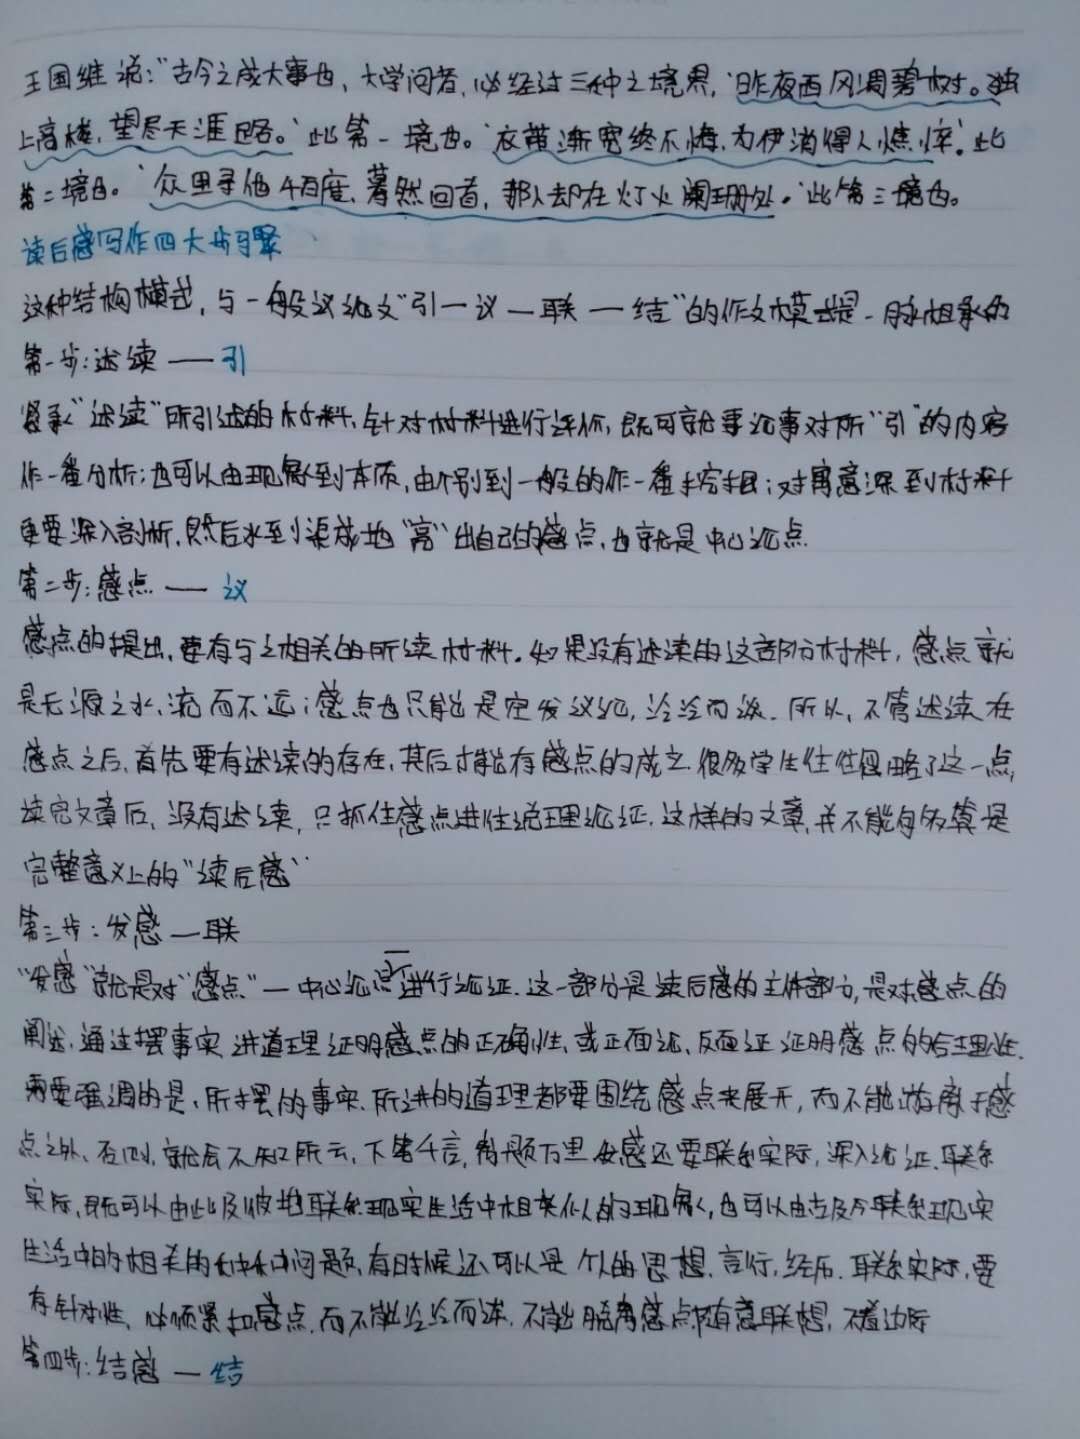 王国维说：“古今之成大事也，大学问者，必经过三种之境界，‘昨夜西风凋碧树。独
上高楼，望尽天涯路。’此第一境也。‘衣带渐宽终不悔，为伊消得人憔悴’。此
第二境也。‘众里寻他千百度，蓦然回首，那人却在灯火阑珊处。’此第三境也。
读后感写作四大步骤
这种结构模式，与一般议论文“引一议一联一结”的作文模式是一脉相承的
第一步：述读——引
紧承“述读”所引述的材料，针对材料进行评析，既可就事论事对所“引”的内容
作一番分析；也可以由现象到本质，由个别到一般的作一番挖掘；对寓意深刻材料
更要深入剖析，然后水到渠成地“亮”出自己的感点，也就是中心论点
第二步：感点——议
感点的提出，要有与之相关的所读材料。如果没有述读的这部份材料，感点就
是无源之水，流而不远；感点也只能是空发议论，泛泛而谈．所以，不管述读在
感点之后，首先要有述读的存在，其后才能有感点的成立．很多学生往往忽略了这一点，
读完文章后，没有述读，只抓住感点进住说理论证．这样的文章，并不能够算是
完整意义上的“读后感”
第三步：发感—联
“发感”就是对“感点”一中心论点进行论证．这一部分是读后感的主体部分，是对感点的
阐述，通过摆事实讲道理证明感点的正确性，或正面论，反面证证明感点的合理性．
需要强调的是，所摆的事实，所讲的道理都要围绕感点来展开，而不能游离于感
点之外，否则，就会不知所云，下笔千言，离题万里．发感还要联系实际，深入论证．联系
实际，既可以由此及彼地联系现实生活中相类似的现象，也可以由古及今联系现实
生活中的相关的种种问题，有时候还可以是个人的思想，言行，经历．联系实际，要
有针对性，必须紧扣感点，而不能泛泛而谈，不能脱离感点随意联想，不着边际
第四步：结感—结